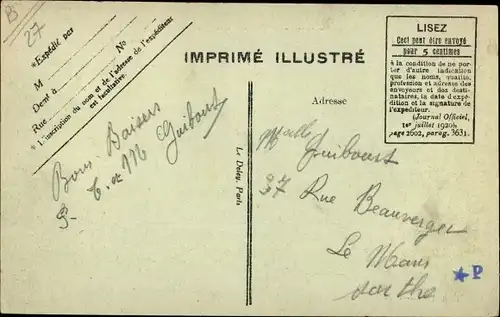 B
27
*Expédié par
M
N°
Demt à
Rue
* L'inscription du nom et de l'adresse de l'expéditeur
est facultative.
IMPRIMÉ ILLUSTRÉ
Adresse
LISEZ
Ceci peut être envoyé
pour 5 centimes
à la condition de ne por-
ter d'autre indication
que les noms, qualité,
profession et adresse des
envoyeurs et des desti-
nataires, la date d'expé-
dition et la signature de
l'expéditeur.
(Journal Officiel,
1er juillet 1920),
page 2602, parag. 3631.
Bons Baisers
et M Guiboust
Le Deley, Paris
Melle Guiboust
37 Rue Beauverger
Le Mans
Sarthe
★P